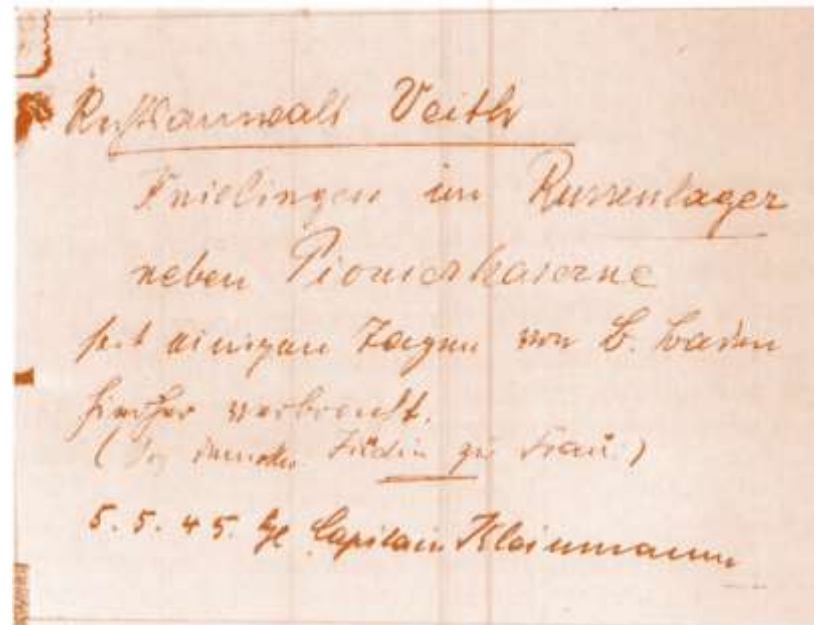 Rechtsanwalt Veith
Knielingen im Russenlager
neben Pionierkaserne
seit einigen Tagen von B. Baden
hierher verbracht.
( Jüdin zur Frau )
5. 5. 45. Capitain Kleinmann